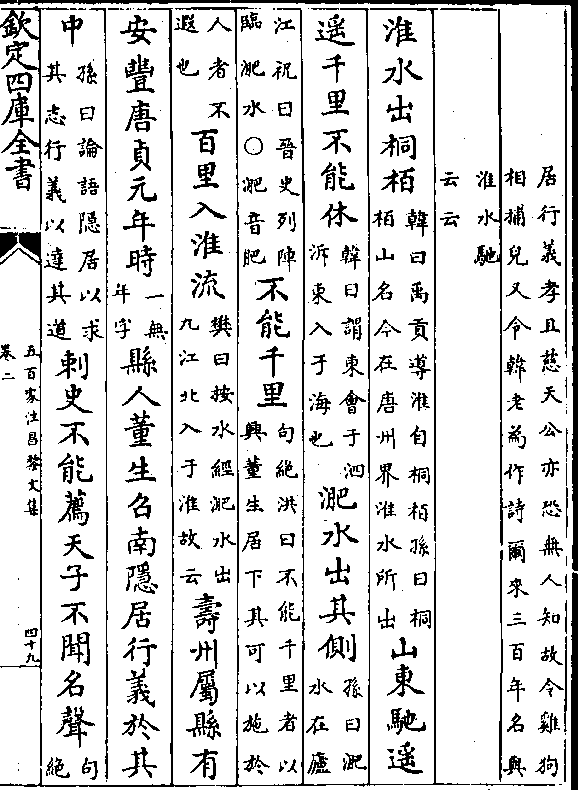 居行義孝且慈天公亦恐無人知故令雞狗
相捕兒又令韓老為作詩爾來三百年名與
淮水馳
云云
淮水出桐栢韓曰禹貢導淮自桐栢孫曰桐
栢山名今在唐州界淮水所出山東馳遥
遥千里不能休韓曰謂東會于泗
泝東入于海也淝水出其側孫曰淝
水在廬
江祝曰晉史列陣
臨淝水〇淝音肥不能千里句絶洪曰不能千里者以
興董生居下其可以施於
人者不
遐也百里入淮流樊曰按水經淝水出
九江北入于淮故云壽州屬縣有
安豐唐貞元年時一無
年字縣人董生召南隱居行義於其
中孫曰論語隱居以求
其志行義以達其道刺史不能薦天子不聞名聲句
絶
欽定四庫全書
五百家注昌黎文集
卷二
四十九